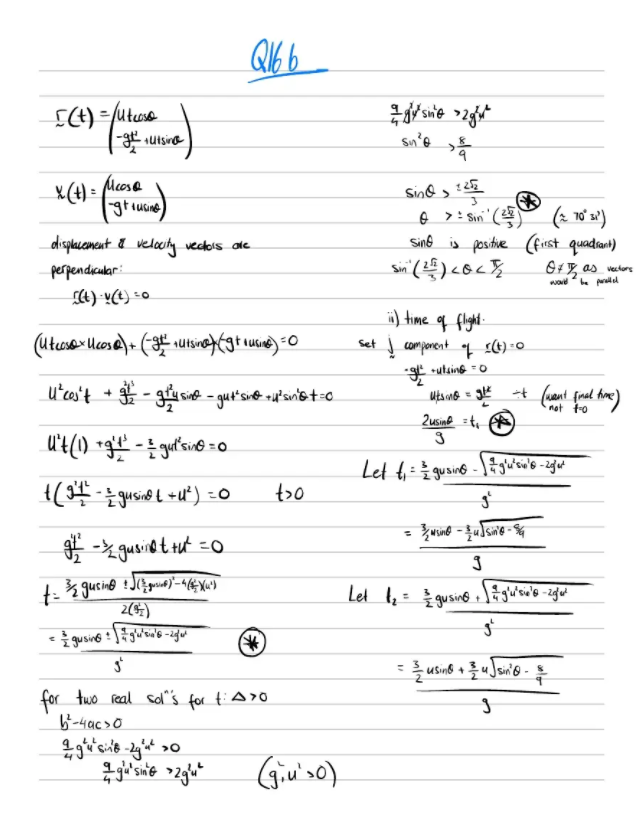 Q16 b
r(t) = (Utcosθ
-gt²/2 + utsinθ)
v(t) = (ucosθ
-gt + usinθ)
displacement & velocity vectors are
perpendicular:
r(t)·v(t) = 0
(Utcosθ × Ucosθ) + (-gt²/2 + utsinθ)×(-gt + usinθ) = 0
U²cos²t + g²t³/2 - gt²usinθ/2 - gut²sinθ + u²sin²θt = 0
U²t(1) + g²t³/2 - 3/2 gut²sinθ = 0
t(g²t²/2 - 3/2 gusinθt + u²) = 0 t>0
g²t²/2 - 3/2 gusinθt + u² = 0
t = (3/2 gusinθ ± √((3/2 gusinθ)² - 4(g²/2)(u²)))/(2(g²/2))
= (3/2 gusinθ ± √(9/4 g²u²sin²θ - 2g²u²))/g² ✱
for two real solⁿ's for t: Δ>0
b²-4ac>0
9/4 g²u²sin²θ - 2g²u² >0
9/4 g²u²sin²θ >2g²u² (g², u² >0)
9/4 g²u²sin²θ >2g²u²
sin²θ > 8/9
sinθ > ±2√2/3 ✱
θ > ± sin⁻¹(2√2/3) (≈ 70° 31')
sinθ is positive (first quadrant)
sin⁻¹(2√2/3) < θ < π/2 θ≠π/2 as vectors
would be parallel
ii) time of flight:
set j component of r(t) = 0
-gt²/2 + utsinθ = 0
utsinθ = gt²/2 ÷t (want final time)
not t=0
2usinθ/g = t₁ ✱
Let t₁ = (3/2 gusinθ - √(9/4 g²u²sin²θ - 2g²u²))/g²
= (3/2 usinθ - 3/2 u√(sin²θ - 8/9))/g
Let t₂ = (3/2 gusinθ + √(9/4 g²u²sin²θ - 2g²u²))/g²
= (3/2 usinθ + 3/2 u√(sin²θ - 8/9))/g